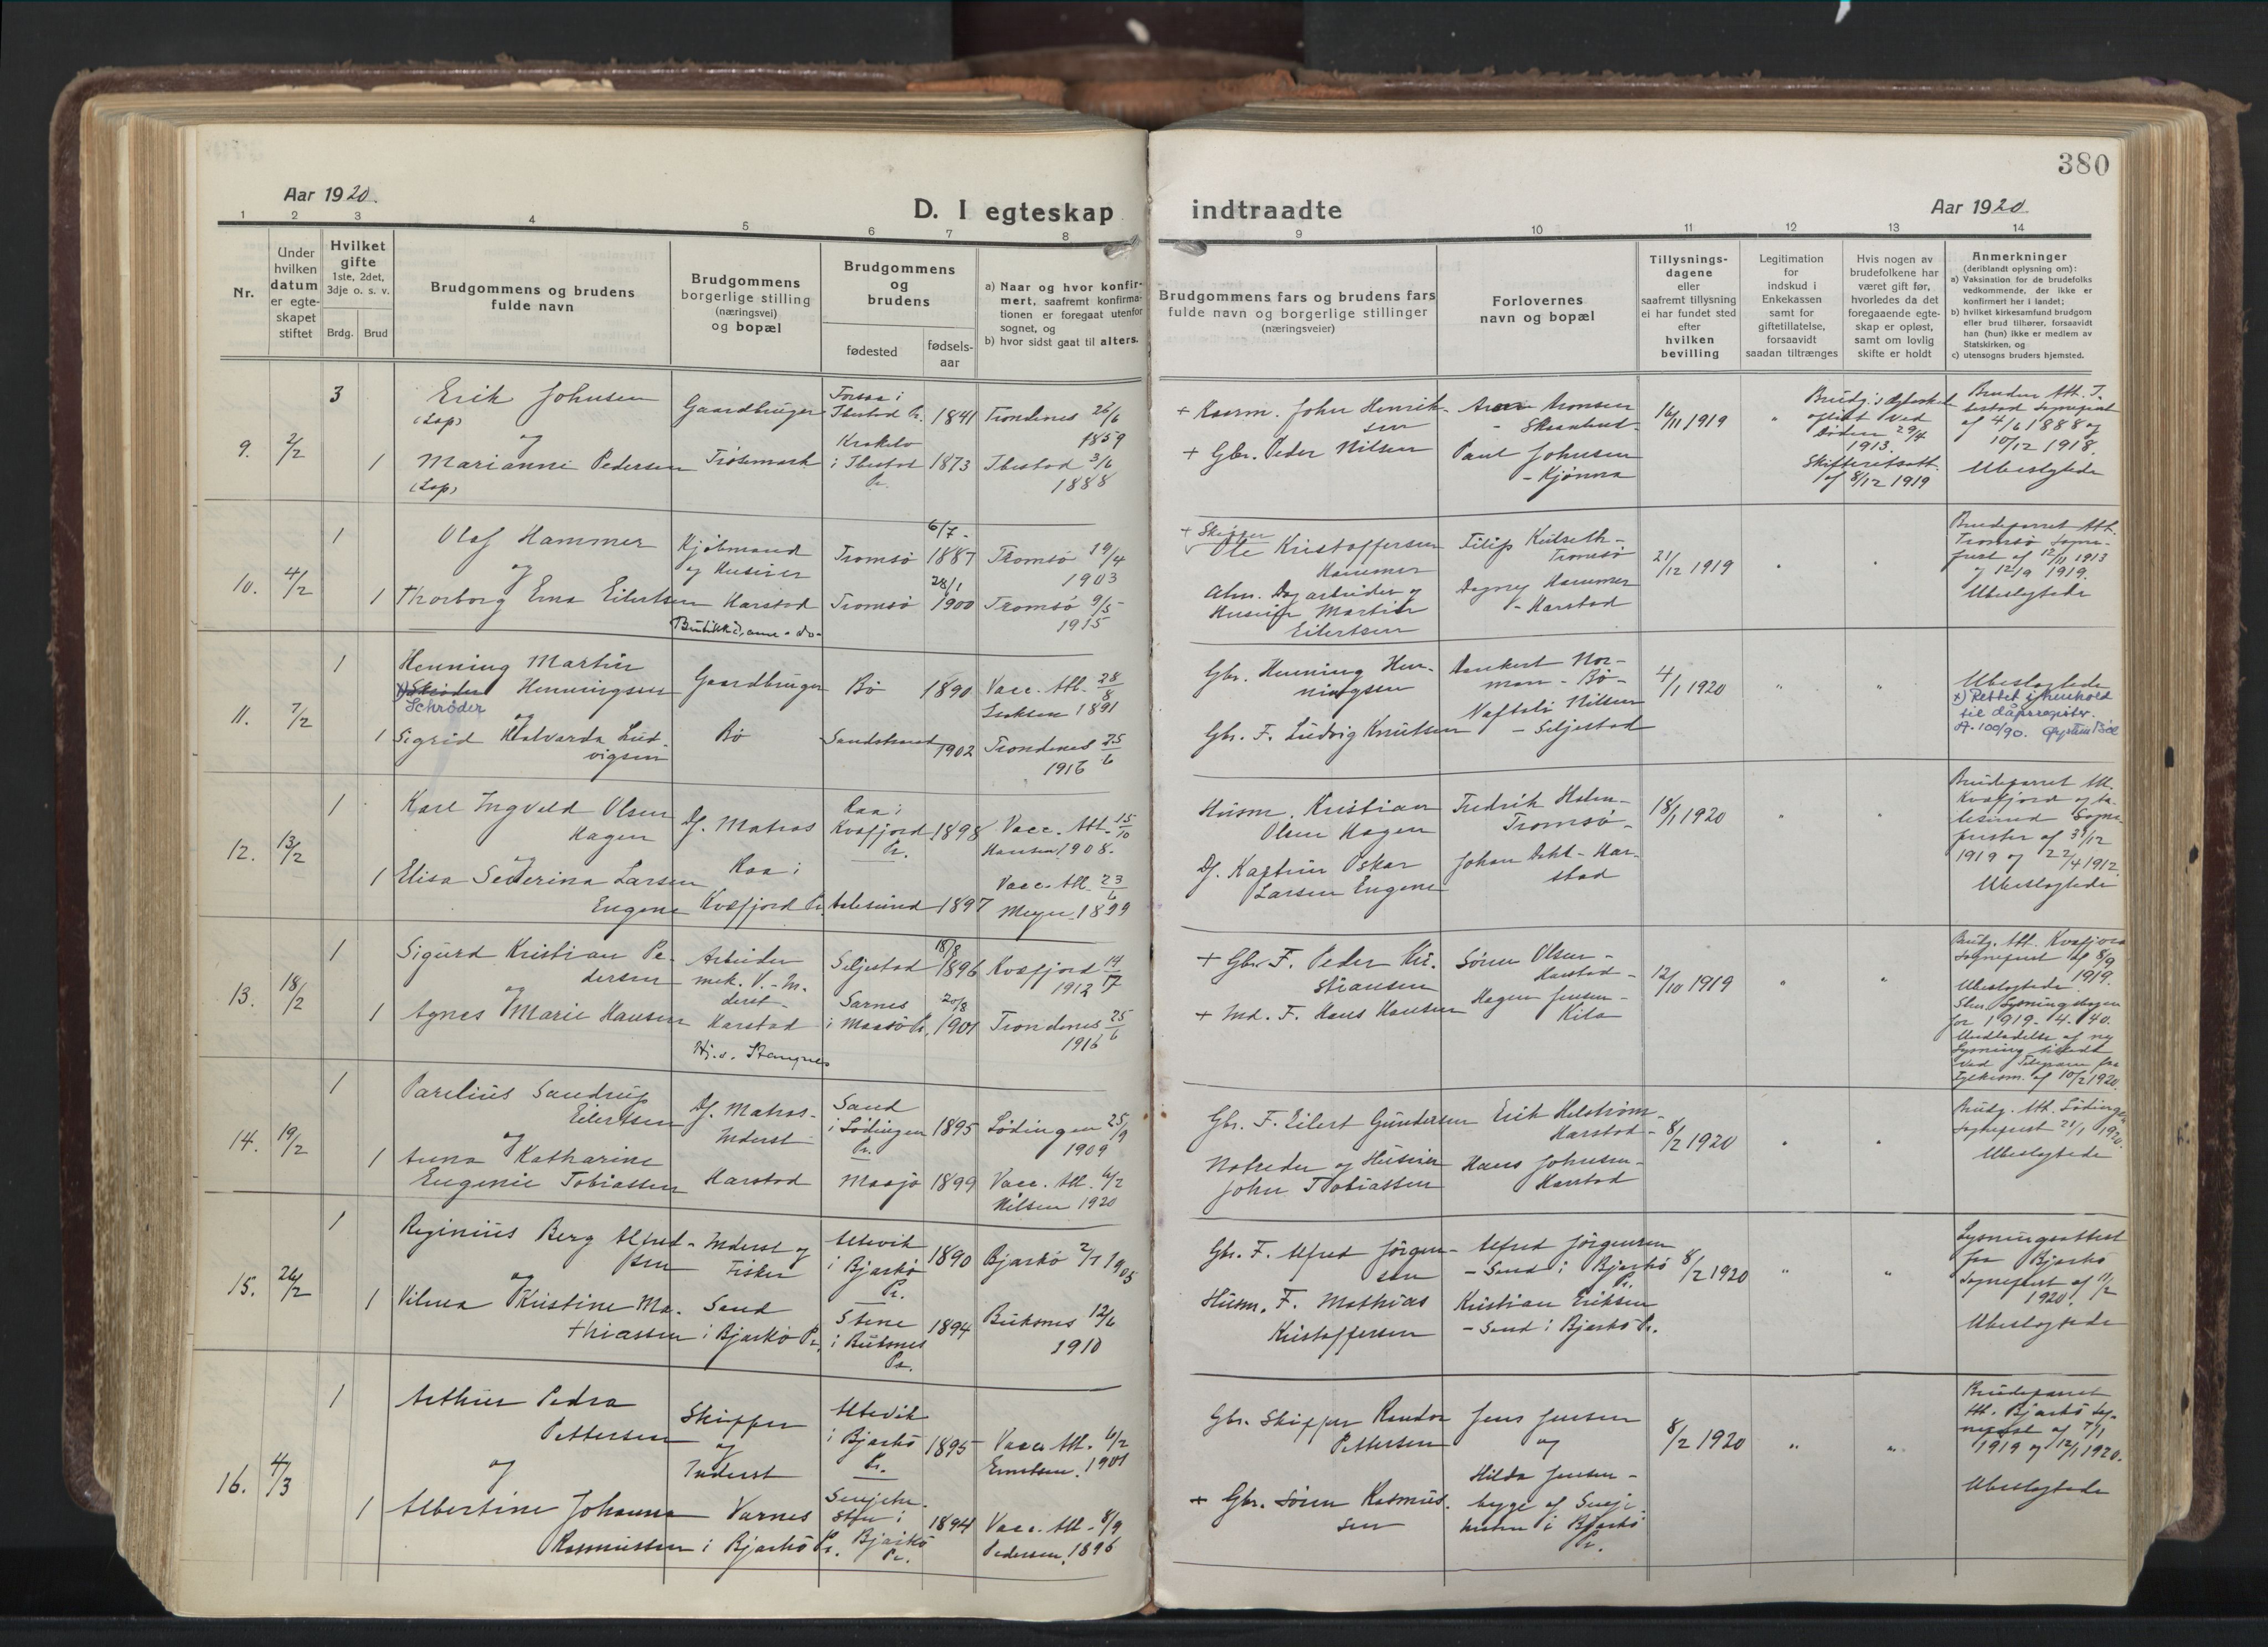 380
Aar 1920.
D. I egteskap
indtraadte
Aar 1920
1
2
3
4
5
6
7
8
9
10
11
12
13
14
Nr.
Under
hvilken
datum
er egte-
skapet
stiftet
Hvilket
gifte
1ste, 2det,
3dje o. s. v.
Brdg.
Brud
Brudgommens og brudens
fulde navn
Brudgommens
borgerlige stilling
(næringsvei)
og bopæl
Brudgommens
og
brudens
fødested
fødsels-
aar
a) Naar og hvor konfir-
mert, saafremt konfirma-
tionen er foregaat utenfor
sognet, og
b) hvor sidst gaat til alters.
Brudgommens fars og brudens fars
fulde navn og borgerlige stillinger
(næringsveier)
Forlovernes
navn og bopæl
Tillysnings-
dagene
eller
saafremt tillysning
ei har fundet sted
efter
hvilken
bevilling
Legitimation
for
indskud i
Enkekassen
samt for
giftetillatelse,
forsaavidt
saadan tiltrænges
Hvis nogen av
brudefolkene har
været gift før,
hvorledes da det
foregaaende egte-
skap er opløst,
samt om lovlig
skifte er holdt
Anmerkninger
(deriblandt oplysning om):
a) Vaksination for de brudefolks
vedkommende, der ikke er
konfirmert her i landet;
b) hvilket kirkesamfund brudgom
eller brud tilhører, forsaavidt
han (hun) ikke er medlem av
Statskirken, og
c) utensogns bruders hjemsted.
9.
2/2
3
1
Erik Johnsen
(Lap)
og
Marianne Pedersen
(Lap)
Gaardbruger
Trøsemark
Ibestad Pr.
i Ibestad
Pr.
1841
1873
Trondenes
1859
Ibestad 3/6
1888
+ John Henrik-
sen
+ Gbr. Peder Nilsen
Aronsen
Paul Johnsen
- Kjønna
16/11 1919
"
Brudg.s Egteskab
opløst ved
døden 29/4
1913.
Skifteretsatt.
af 8/12 1919
Bruden Att. I-
bestad Sognepræst
af 4/6 1888 og
10/12 1918.
Ubeslegtede
10.
4/2
1
1
Olaf Hammer
og
Thorborg Erna Eilertsen
Kjøbmand
og Huseier
Harstad
- do -
Tromsø
Tromsø
6/7 -
1887
28/1
1900
Tromsø 19/4
1903
Tromsø 9/5 -
1915
+ Skipper
Ole Kristoffersen
Hammer
Alm. Dagarbeider og
Huseier Martin
Eilertsen
Filip Kulseth -
Tromsø
Dagny Hammer
- Harstad
21/12 1919
Brudeparret Att.
Tromsø Sogne-
prest af 12/11 1913
og 12/9 1919.
Ubeslegtede
11.
7/2
1
1
Henning Martin
x) Skrøder Henningsen
Schrøder
og
Sigrid Halvarda Lud-
vigsen
Gaardbruger
Bø
Bø
Sandstrand
1890
1902
Vacc. Att. 28/8
1891
Trondenes 25/6
1916
Gbr. Henning Hen-
ningsen
Gbr. F. Ludvig Knutsen
Nor-
man - Bø -
Naftali Nilsen
- Seljestad
4/1 1920
"
"
Ubeslegtede
x) Rettet i henhold
til dåpsregistr.
A. 100/90.
12.
13/2
1
1
Karl Ingvald Olsen
Hagen
og
Elisa Severina Larsen
Eugene
Df. Matros
Raa i
Kvæfjord Pr.
Raa i
Kvæfjord
Pr.
Aalesund
1898
1897
Vacc. Att. 15/10
Hansen 1908.
Vacc. Att. 23/6
Meyer 1899
Husm. Kristian
Olsen Hagen
Df. Kaptein Oskar
Larsen Eugene
Fredrik Holm -
Tromsø -
Johan Dahl - Har-
stad
18/1 1920
Brudeparret Att.
Kvæfjord og Aa-
lesund Sogne-
prester af 31/12
1919 og 22/4 1912.
Ubeslegtede
13.
18/2
1
1
Sigurd Kristian Pe-
dersen
og
Agnes Marie Hansen
Arbeider
mek. V. - In-
derst -
Harstad
Hj. v. Stangnes
Seljestad
Sarnes
i Maasø Pr.
18/8
1896
20/8
1901
Kvæfjord 14/7
1912
Trondenes 25/6
1916
+ Gbr. F. Peder Kri-
stiansen
+ Ind. F. Hans Hansen
Søren Olsen -
Harstad -
Hagen Jensen -
Kila
12/10 1919
Brudg. Att. Kvæfjord
Sognepræst af 8/9
1919.
Ubeslegtede.
Lysningsbogen
for 1919. 4. 40.
Undladelse af ny
Lysning tilladt
ved Telegram fra
Fylkesm. af 10/2 1920.
14.
19/2
1
1
Parelius Sandrup
Eilertsen
og
Anna Katharine
Eugenie Tobiassen
Df. Matros -
Inderst -
Harstad
Sand
i Lødingen
Pr.
Maasø
1895
1899
Lødingen 25/9
1909
Vacc. Att. 6/2
Nilsen 1920
Gbr. F. Eilert Gundersen
Notreder og Huseier
John Tobiassen
Erik Helstrøm -
Harstad -
Hans Johnsen -
Harstad
8/2 1920
Brudg. Att. Lødingen
Sognepræst 21/1 1920.
Ubeslegtede
15.
26/2
1
1
Reginius Berg Alfred-
sen
og
Vilma Kristine Ma-
thiassen
Inderst og
Fisker
Sand
i Bjarkö Pr.
Altevik
i Bjarkö
Pr.
Stene
i Buksnes
Pr.
1890
1894
Bjarkö 2/7 1905
Buksnes 12/6
1910
Gbr. F. Alfred Jörgen-
sen
Husm. F. Mathias
Kristoffersen
Alfred Jörgensen
- Sand i Bjarkö
Pr.
Kristian Eriksen
- Sand i Bjarkö Pr.
8/2 1920
"
"
Lysningsattest
fra Bjarkö
Sognepræst af 11/2
1920.
Ubeslegtede
16.
4/3
1
1
Arthur Pedra
Pettersen
og
Albertine Johanna
Rasmussen
Skipper
og
Inderst
Varnes
i Bjarkö Pr.
Altevik
i Bjarkö
Pr.
Senjehe-
sten i
Bjarkö
Pr.
1895
1894
Vacc. Att. 6/2
Erntsen. 1901
Vacc. Att. 8/9
Pedersen. 1896
Gbr. Skipper
Pettersen
+ Gbr. Søren Rasmus-
sen
Jens Jensen
og
Hilda Jensen -
begge af Senje-
hesten i Bjarkö
Pr.
8/2 1920
"
"
Brudeparret
Att. Bjarkö Sog-
nepræst af 7/1
1919 og 12/1 1920.
Ubeslegtede